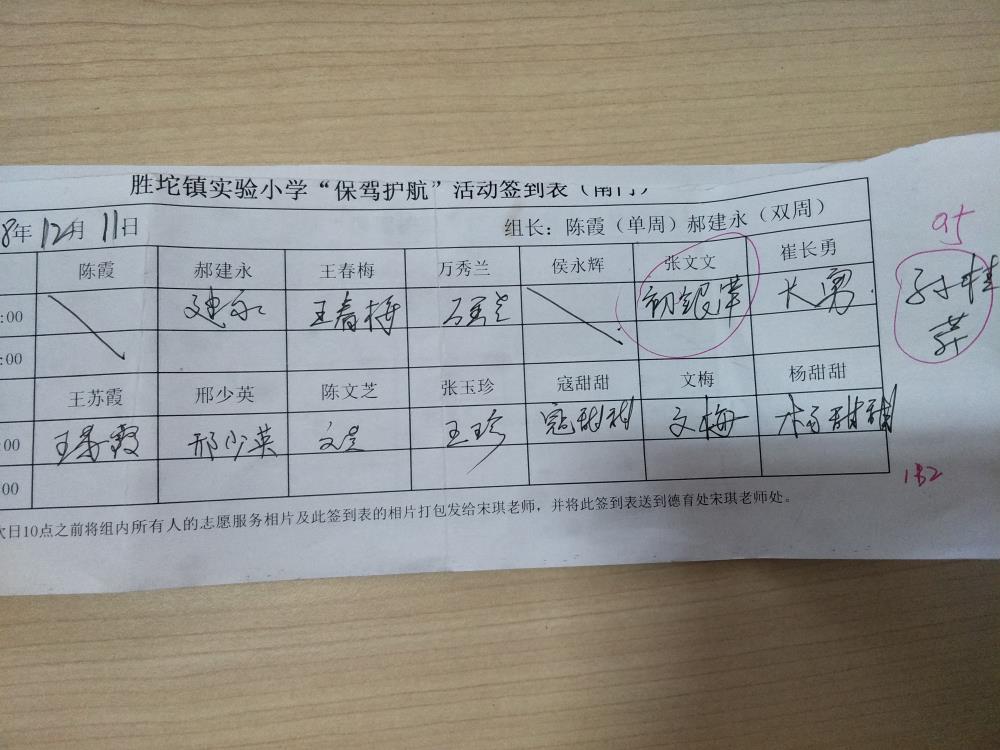 胜坨镇实验小学“保驾护航”活动签到表（南门）
8年12月11日 组长：陈霞（单周）郝建永（双周）
陈霞 郝建永 王春梅 万秀兰 侯永辉 张文文 崔长勇
:00 建永 王春梅 万秀兰 初银萍 长勇
:00
王苏霞 邢少英 陈文芝 张玉珍 寇甜甜 文梅 杨甜甜
:00 王苏霞 邢少英 文芝 玉珍 寇甜甜 文梅 杨甜甜
:00
次日10点之前将组内所有人的志愿服务相片及此签到表的相片打包发给宋琪老师，并将此签到表送到德育处宋琪老师处。
孙桂